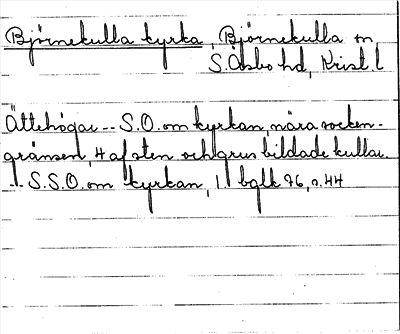 Bjørnekulla kyrka, Bjørnekulla sn
S. Åsbo hd, Krist. l
Ättehögar -- S.O. om kyrkan, nära socken-
gränsen, 4 af sten och grus bildade kullar.
-- S.S.O. om kyrkan, 1. bglk 76, s. 44